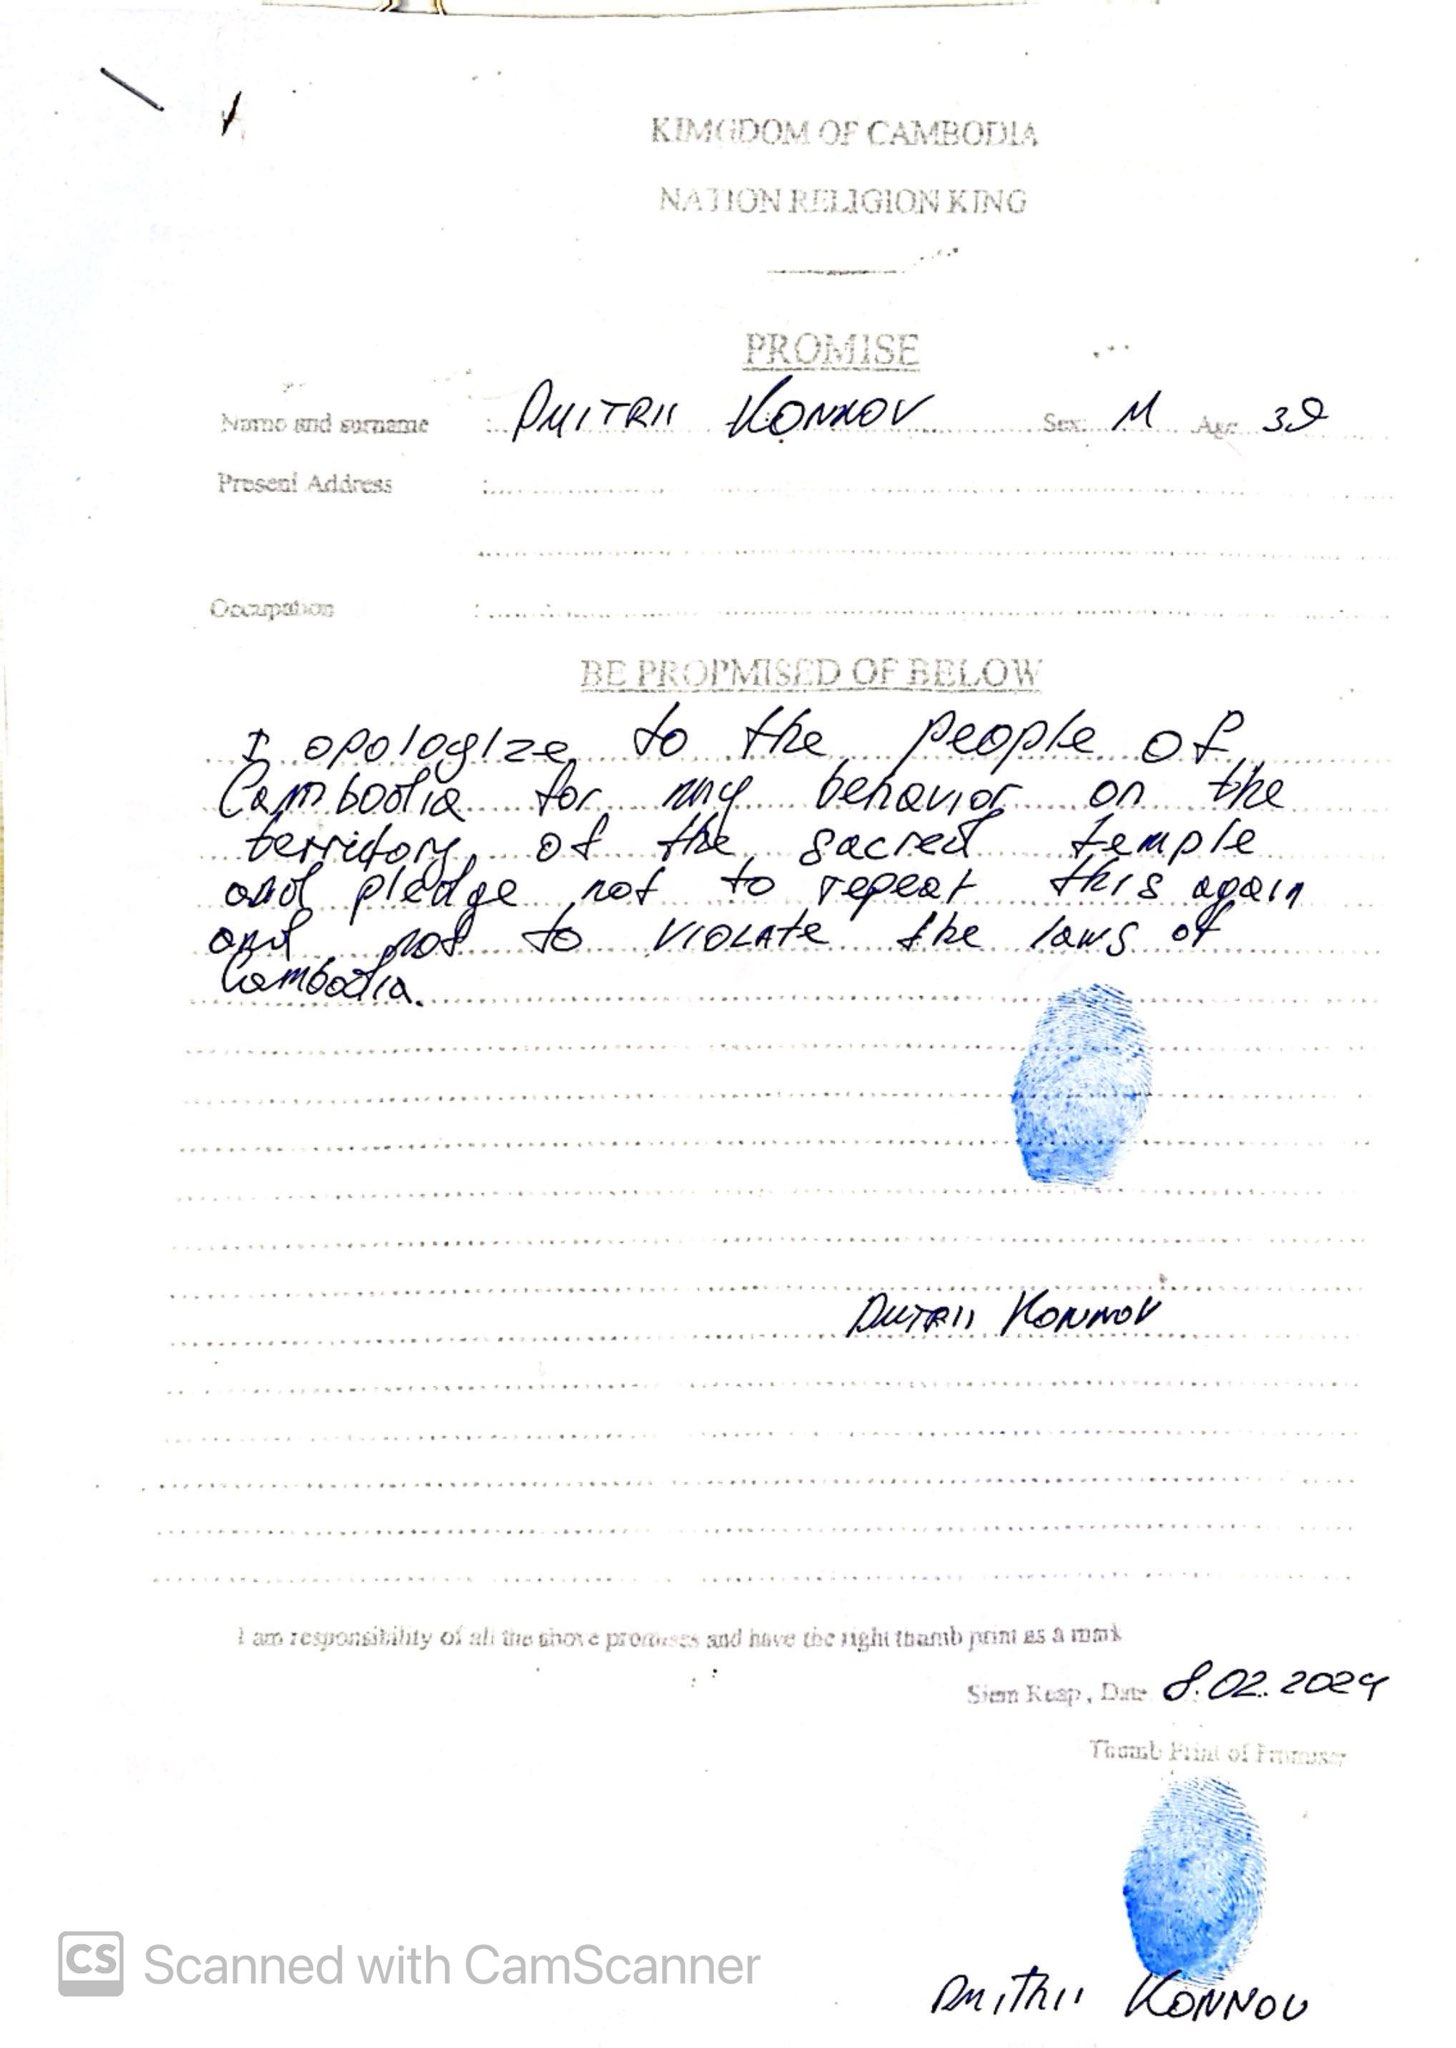 KIMGDOM OF CAMBODIA
NATION RELIGION KING
PROMISE
Name and surname : DMITRII KONNOV Sex: M Age 39
Present Address :
Occupation :
BE PROPMISED OF BELOW
I opologize to the people of
Cambodia for my behavior on the
territory of the sacred temple
and pledge not to repeat this again
and not to violate the laws of
Cambodia.
DMITRII KONNOV
I am responsibility of all the above promises and have the right thumb print as a mark
Siem Reap, Date 8.02.2024
Thumb Print of Promiser
CS Scanned with CamScanner
DMITRII KONNOV